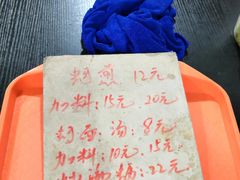 炒煎 12元
加料：15元 20元
炒面：汤：8元
加料：10元.15元
22元